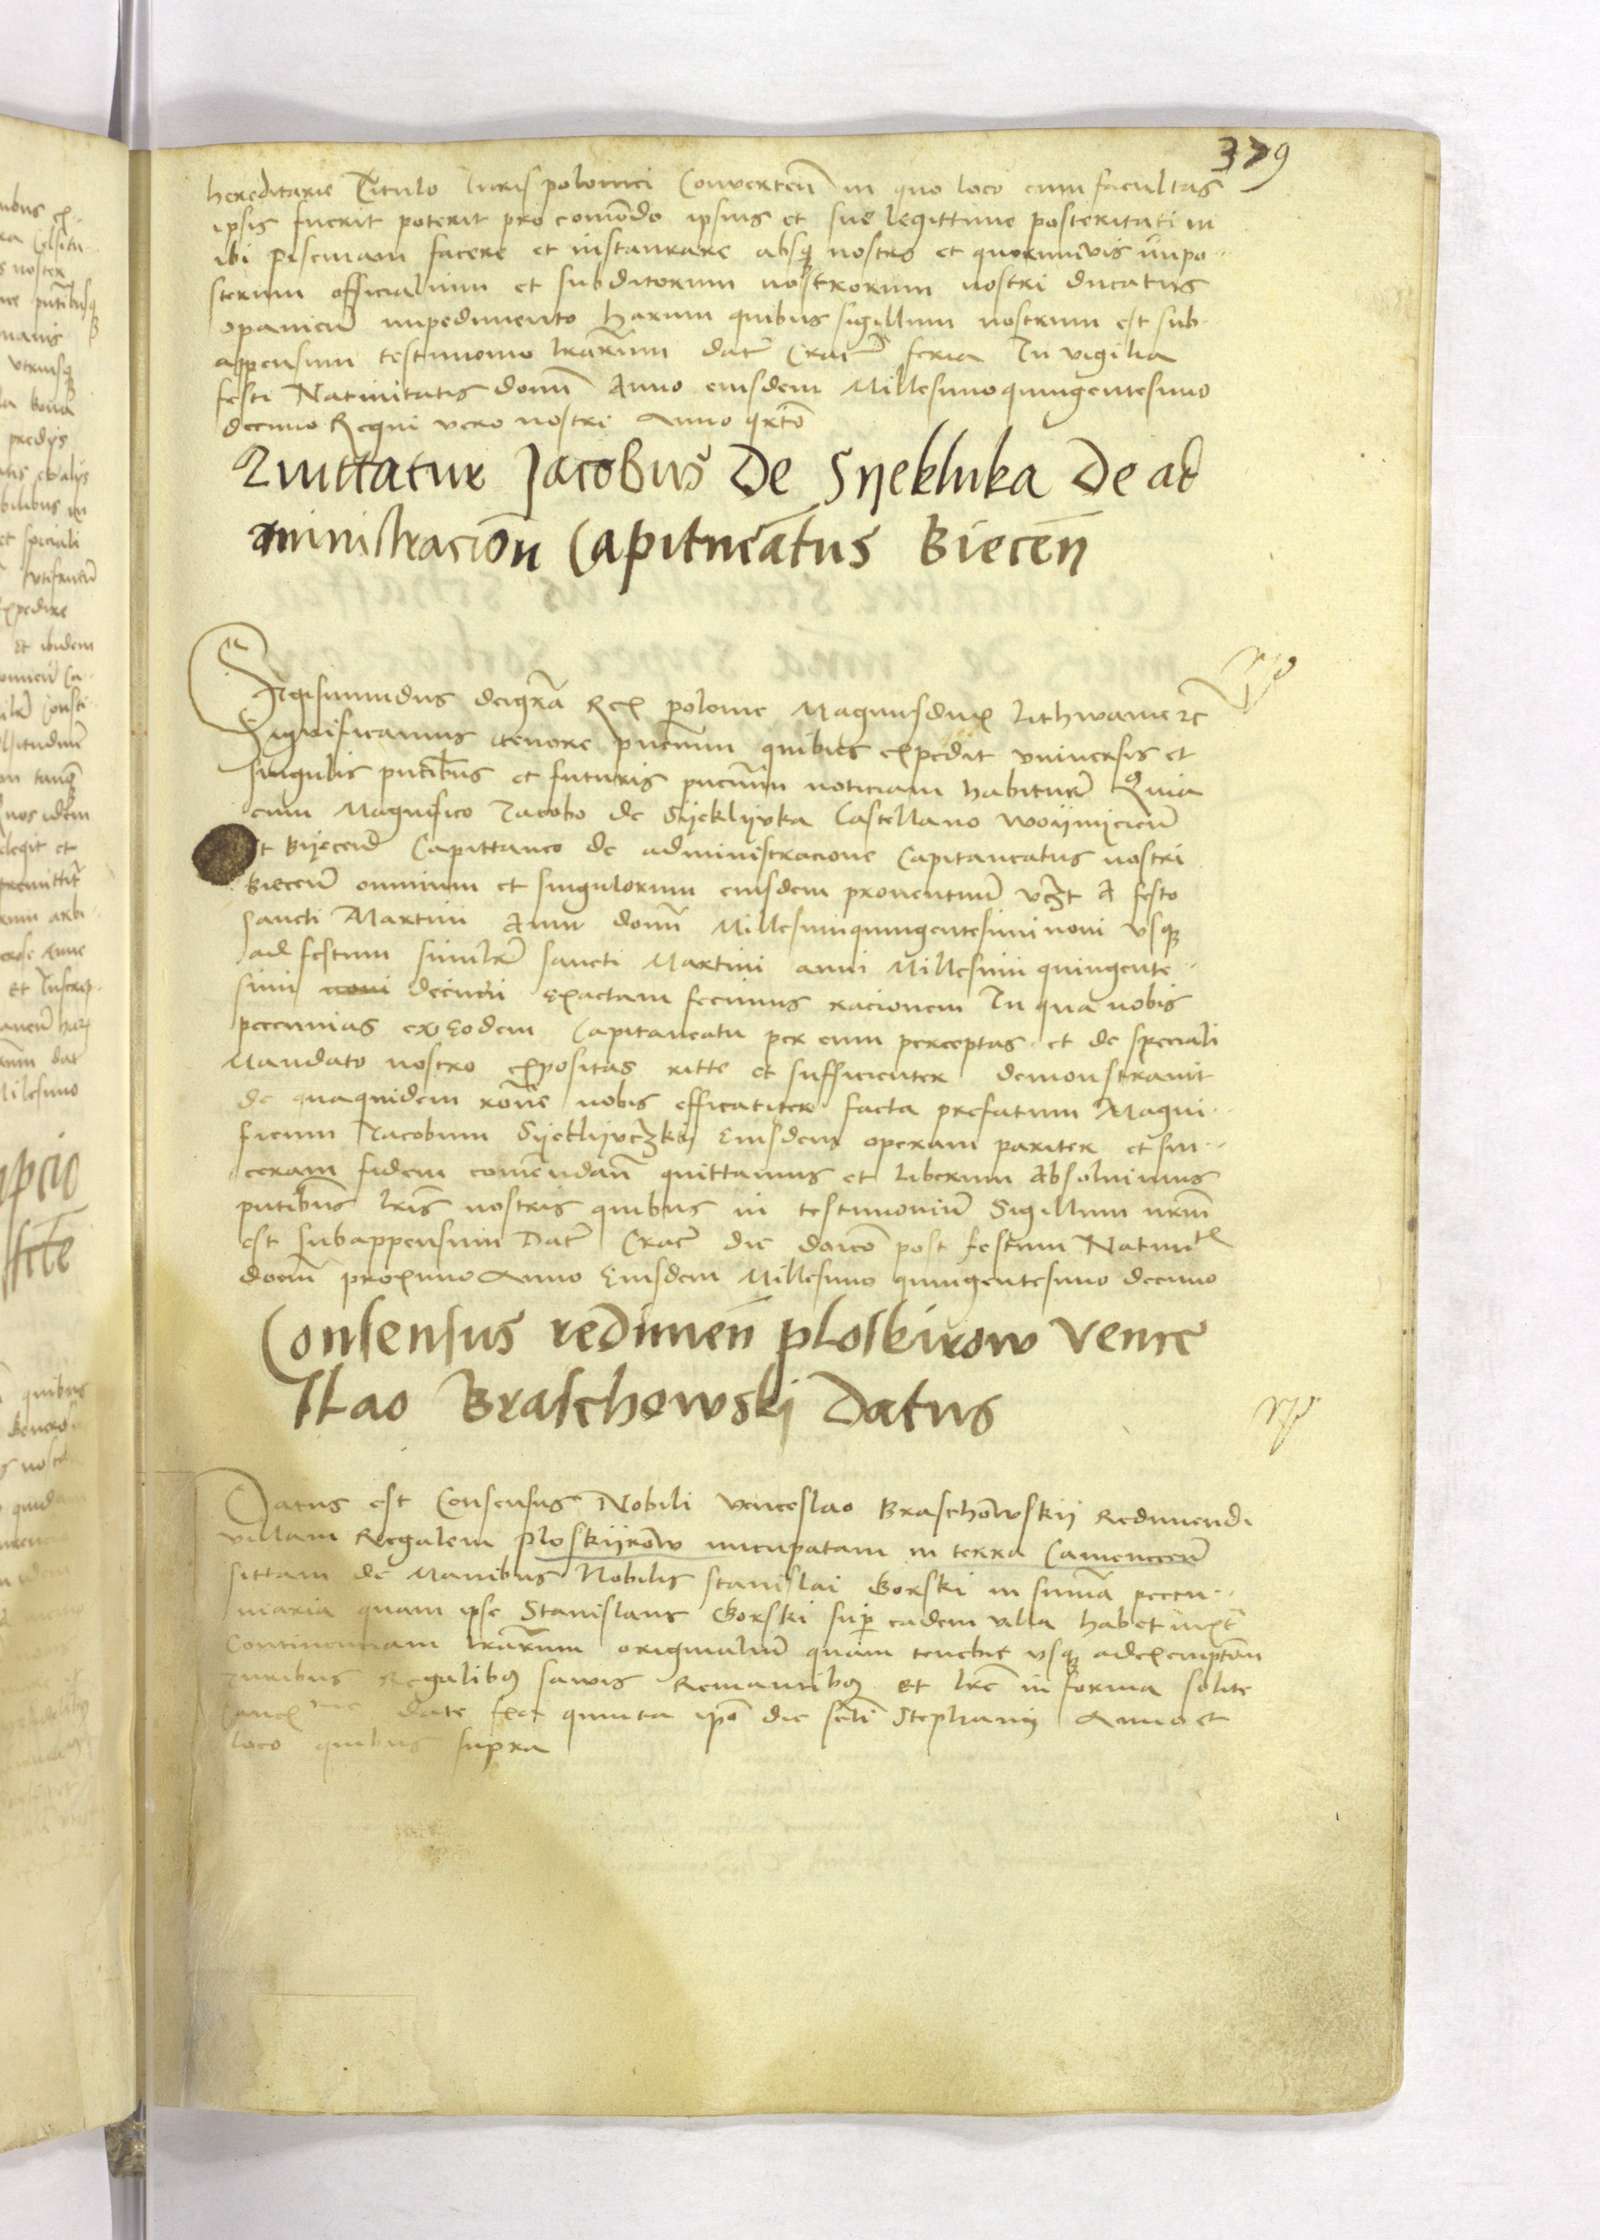 379
hereditarie Titulo Iuris polonici Converteñ in quo loco cum facultas
ipsis fuerit poterit pro comodo ipsius et sue legittime posteritati in
ibi piscinam facere et instaurare absq nostro et quorumvis impo-
sterum officialium et subditorum nostrorum nostri ducatus
opaniceñ impedimento harum quibus sigillum nostrum est sub-
appensum testimonio lrarum dat Crac feria In vigilia
festi Nativitatis domi Anno eiusdem Millesimoquingentesimo
decimo Regni vero nostri Anno qrto
Quittatur Jacobus De Syekluka De ad
ministracion Capitneatus Biecen
Sigismundus dei gra Rex polonie Magnusdux Lithwanie zc
Significamus tenore pntium quibus expedit universis et
singulis pntibus et futuris pntium noticiam habiturs Quia
cum Magnifico Jacobo de Syeklyvka Castellano woynyceñ
et Byeceñ Capittaneo de administracione Capitaneatus nostri
Bieceñ omnium et singulorum eiusdem proventuum vczt A festo
sancti Martini Anni domi Millesimiquingentesimi noni vsq
ad festum similr sancti Martini anni Millesimi quingente-
simi noni decimi exactam fecimus racionem In qua nobis
peccunias ex Eodem Capitaneatu per eum perceptas et de speciali
Mandato nostro expositas ritte et sufficienter demonstravit
de quaquidem rone nobis efficatiter facta prefatum Magni-
ficum Jacobum Syeklyvczky Eiusdem operam pariter et sin-
ceram fidem comendan quittamus et liberum Absolvimus
pntibus lris nostris quibus in testimonium Sigillum nrm
est subappensum Dat Crac die dnico post festum Nativitis
domi proximo Anno Eiusdem Millesimo quingentesimo decimo
Consensus redimen ploskirow Vence
slao Braschowski Datus
Datus est Consensus Nobili Venceslao Braschowskij Redimendi
villam Regalem Ploskijrow nucupatam in terra Cameneceñ
sittam de Manibus Nobilis Stanislai Gorski in suma peccu-
niaria quam ipse Stanislaus Gorski sup eadem villa habet iuxt
Continenciam lrarum originalium quam tenebit vsq ad exempton
Iuribus Regalibus salvis Remantibus et lre in forma solite
Cancrie date feria quinta ipo die scti Stephani Anno et
loco quibus supra